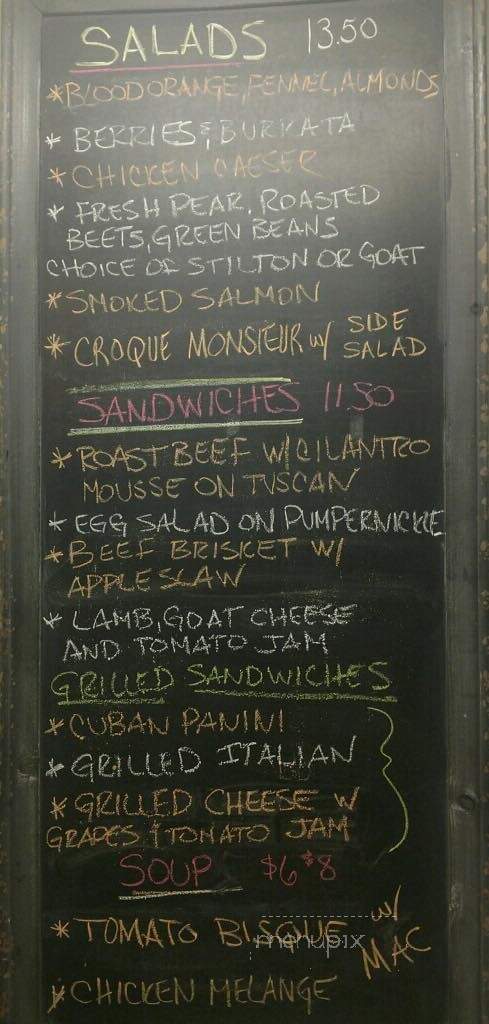 SALADS 13.50
*BLOOD ORANGE, FENNEL, ALMONDS
* BERRIES & BURRATA
* CHICKEN CAESER
* FRESH PEAR, ROASTED
BEETS, GREEN BEANS
CHOICE OF STILTON OR GOAT
*SMOKED SALMON
* CROQUE MONSIEUR W/ SIDE
SALAD
SANDWICHES 11.50
*ROAST BEEF W/CILANTRO
MOUSSE ON TUSCAN
* EGG SALAD ON PUMPERNICKLE
*BEEF BRISKET W/
APPLESLAW
* LAMB, GOAT CHEESE
AND TOMATO JAM
GRILLED SANDWICHES
*CUBAN PANINI
*GRILLED ITALIAN
* GRILLED CHEESE W
GRAPES & TOMATO JAM
SOUP $6 $8
*TOMATO BISQUE W/
MAC
menupix
* CHICKEN MELANGE